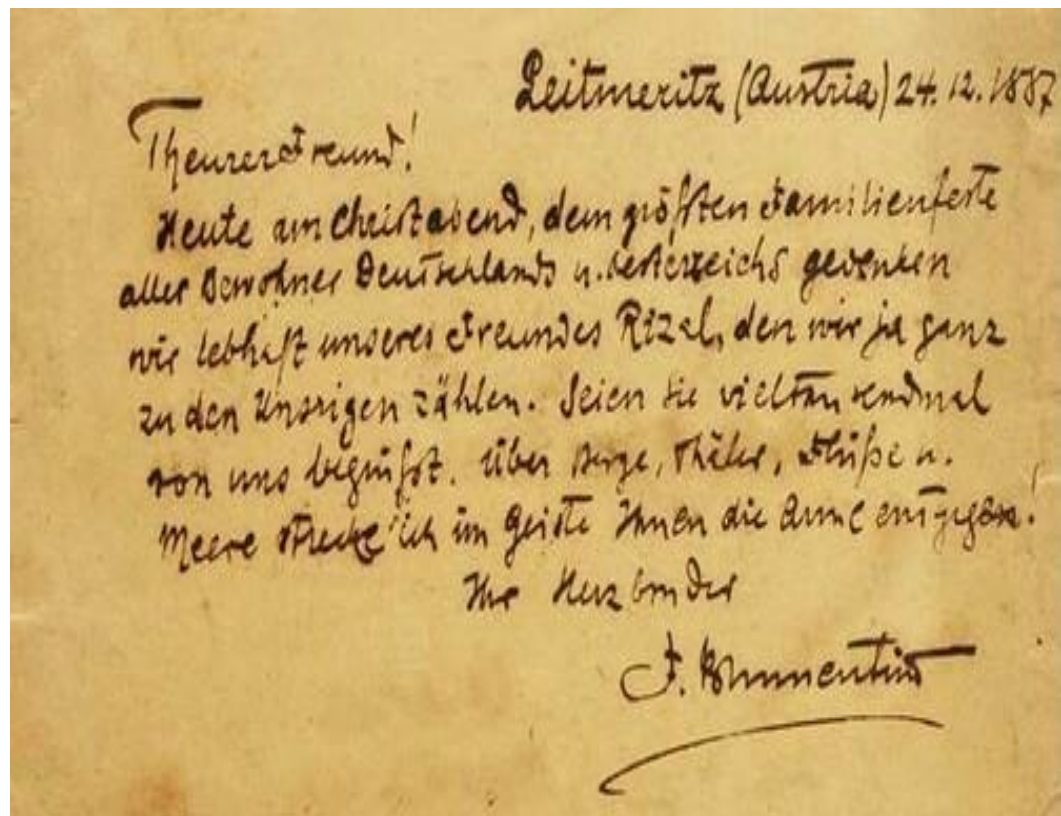 Leitmeritz (Austria) 24.12.1887
Theurer Freund!
Heute am Christabend, dem größten Familienfeste
aller Bewohner Deutschlands u. Oesterreichs gedenken
wir lebhaft unseres Freundes Rizal, den wir ja ganz
zu den Unsrigen zählen. Seien Sie vieltausendmal
von uns begrüßt. Über Berge, Thäler, Flüße u.
Meere strecke ich im Geiste Ihnen die Arme entgegen!
Ihr Herzbruder
F. Blumentritt